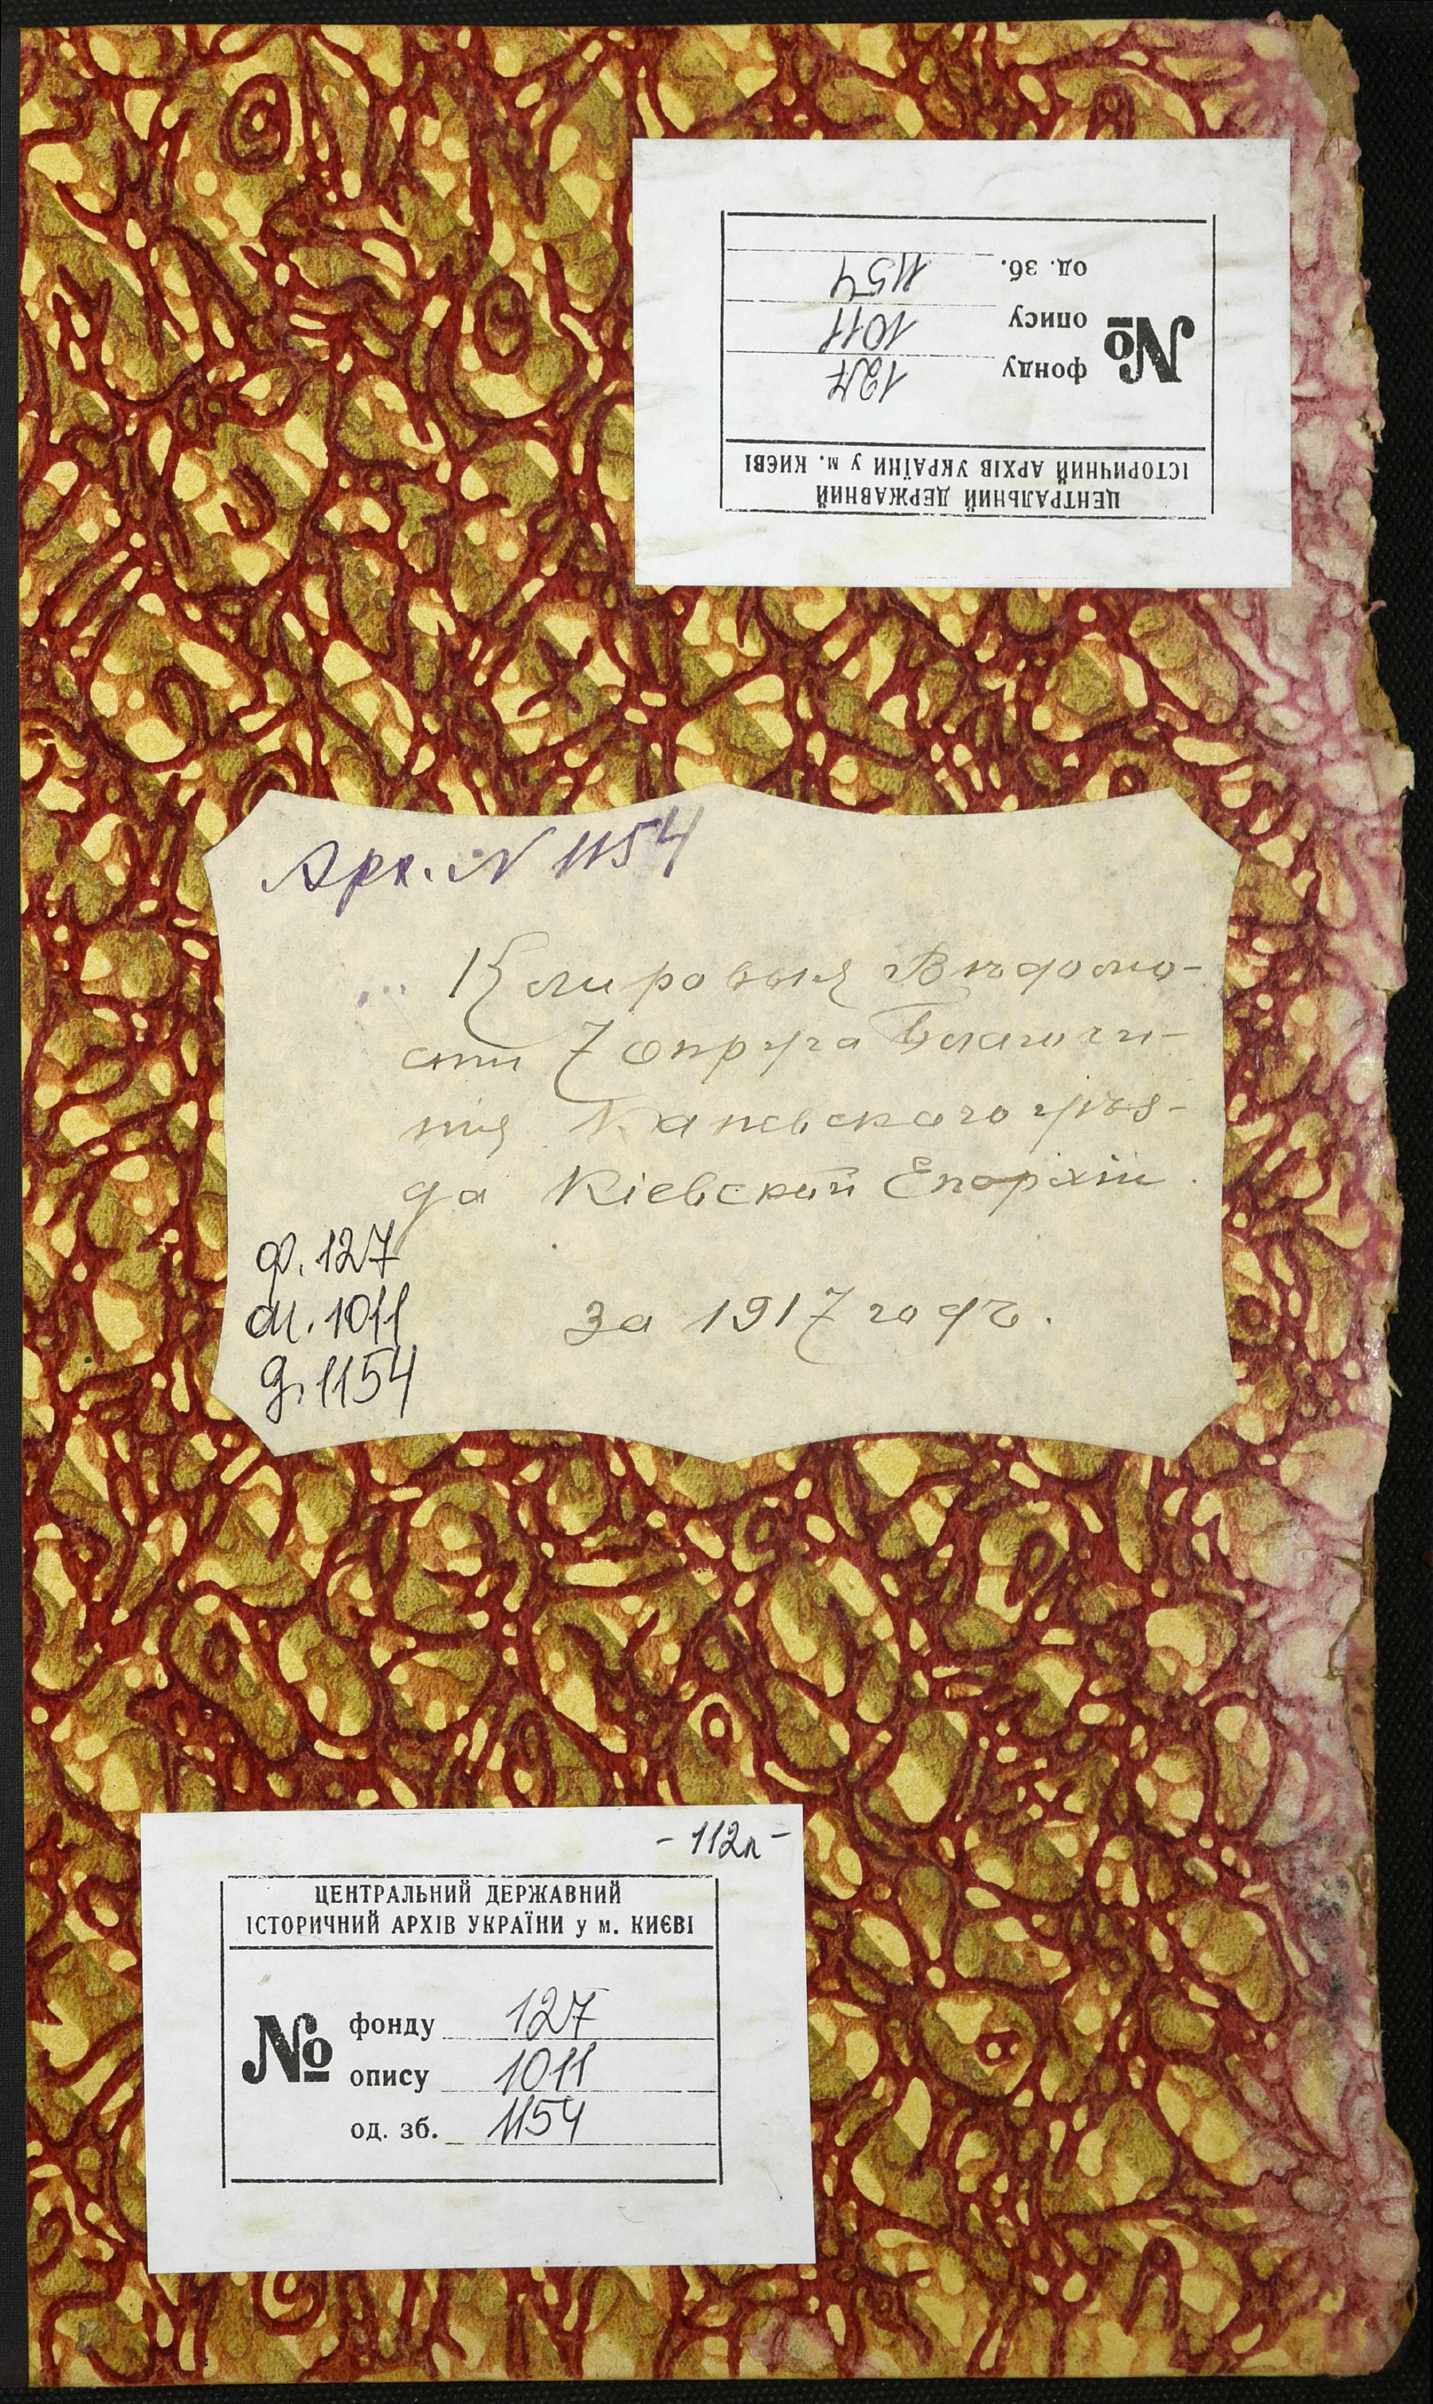 ЦЕНТРАЛЬНИЙ ДЕРЖАВНИЙ
ІСТОРИЧНИЙ АРХІВ УКРАЇНИ у м. КИЄВІ
№
фонду 127
опису 1011
од. зб. 1154
Арх. N 1154
Клировыя Вѣдомо-
сти 7 округа Благочи-
нія Каневскаго уѣз-
да Кіевской Епархіи.
за 1917 годъ.
ф. 127
оп. 1011
д. 1154
- 112л -
ЦЕНТРАЛЬНИЙ ДЕРЖАВНИЙ
ІСТОРИЧНИЙ АРХІВ УКРАЇНИ у м. КИЄВІ
№
фонду 127
опису 1011
од. зб. 1154